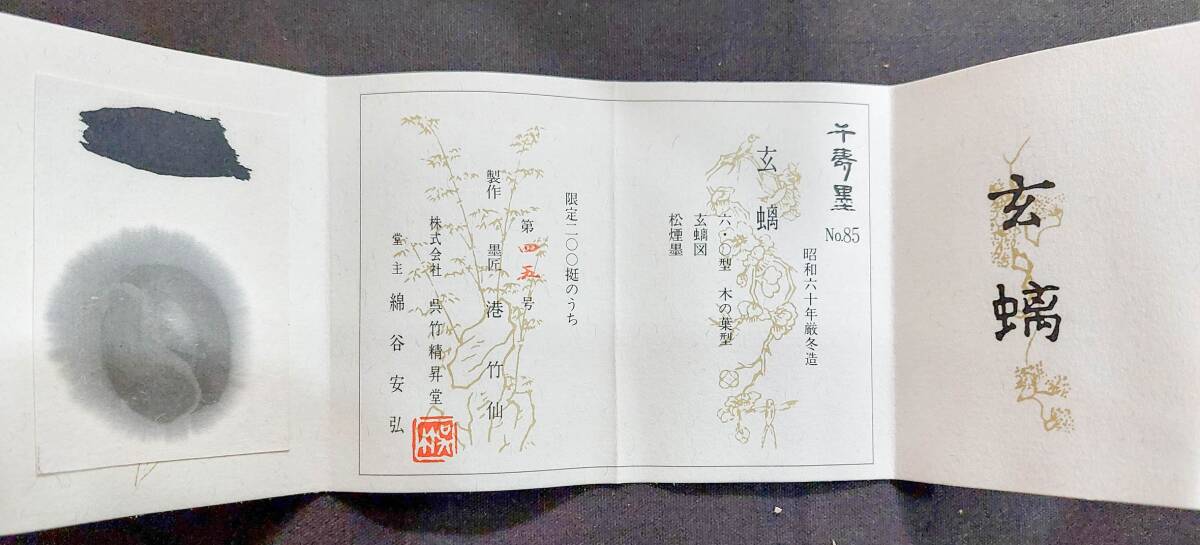 玄
螭
千寿墨
No.85
昭和六十年厳冬造
玄 螭
六・〇型 木の葉型
玄螭図
松煙墨
限定二〇〇挺のうち
第四五号
製作 墨匠 港竹仙
株式会社 呉竹精昇堂
堂主 綿谷安弘